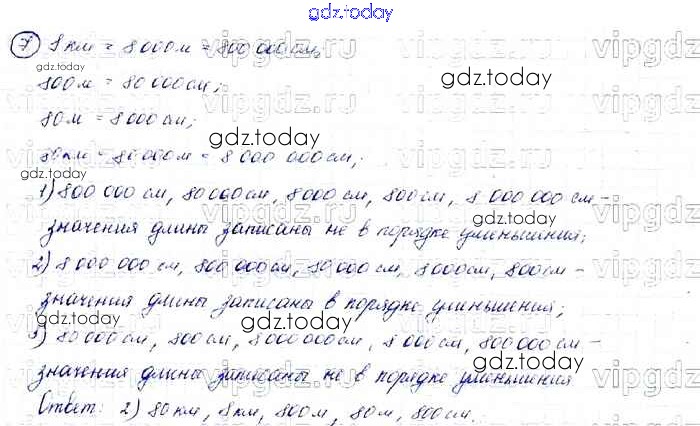 gdz.today
7) 8 км = 8 000 м = 800 000 см,
800 м = 80 000 см;
80 м = 8 000 см;
80 км = 80 000 м = 8 000 000 см;
1) 800 000 см, 80 000 см, 8 000 см, 800 см, 8 000 000 см –
значения длины записаны не в порядке уменьшения;
2) 8 000 000 см, 800 000 см, 80 000 см, 8 000 см, 800 см –
значения длины записаны в порядке уменьшения;
3) 80 000 см, 800 см, 8 000 000 см, 8 000 см, 800 000 см –
значения длины записаны не в порядке уменьшения
Ответ: 2) 80 км, 8 км, 800 м, 80 м, 800 см.
gdz.today
gdz.today
gdz.today
gdz.today
gdz.today
gdz.today
gdz.today
vipgdz.ru
vipgdz.ru
vipgdz.ru